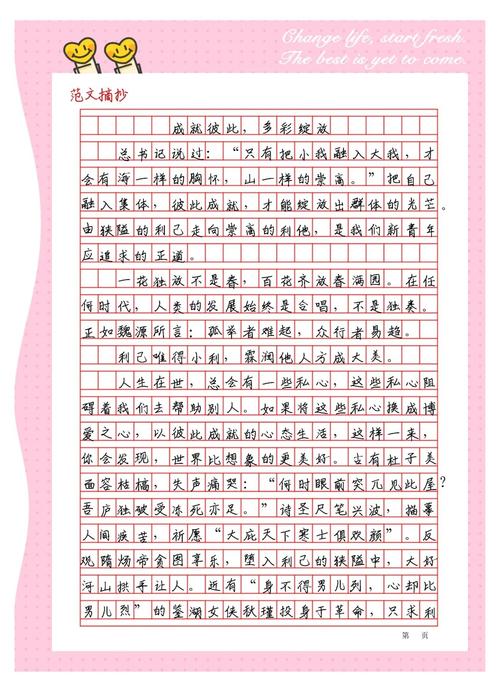 Change life, start fresh.
The best is yet to come.
范文摘抄
成就彼此，多彩绽放
总书记说过：“只有把小我融入大我，才
会有海一样的胸怀，山一样的崇高。”把自己
融入集体，彼此成就，才能绽放出群体的光芒。
由狭隘的利己走向崇高的利他，是我们新青年
应追求的正道。
一花独放不是春，百花齐放春满园。在任
何时代，人类的发展始终是合唱，不是独奏。
正如魏源所言：孤举者难起，众行者易趋。
利己唯得小利，霖润他人方成大美。
人生在世，总会有一些私心，这些私心阻
碍着我们去帮助别人。如果将这些私心换成博
爱之心，以彼此成就的心态生活，这样一来，
你会发现，世界比想象的更美好。古有杜子美
面容枯槁，失声痛哭：“何时眼前突兀见此屋？
吾庐独破受冻死亦足。”诗圣尺笔兴波，描摹
人间疾苦，祈愿“大庇天下寒士俱欢颜”。反
观隋炀帝贪图享乐，堕入利己的狭隘中，大好
河山拱手让人。近有“身不得男儿列，心却比
男儿烈”的鉴湖女侠秋瑾投身于革命，只求利
第 页